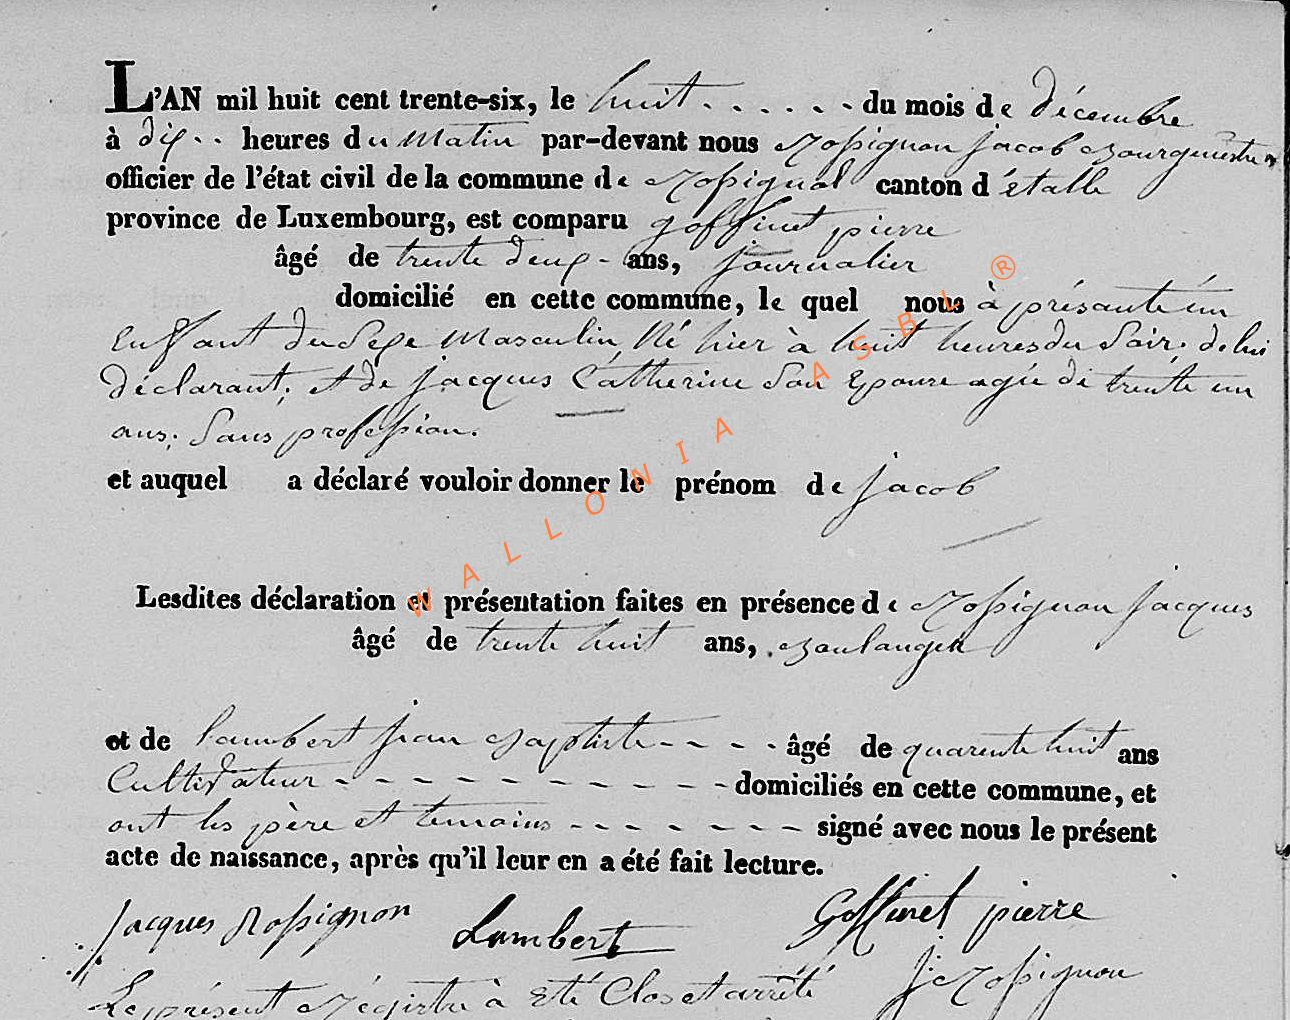 L'AN mil huit cent trente-six, le huit . . . . . . du mois de décembre
à dix . . heures du matin par-devant nous Rossignon jacob Bourgmestre
officier de l'état civil de la commune de Rossignol canton d'étalle
province de Luxembourg, est comparu goffinet pierre
âgé de trente deux - ans, journalier
domicilié en cette commune, le quel nous à présanté un
Enffant du Sexe Masculin, Né hier à huit heures du Soir, de lui
déclarant; et de jacques Catherine Son Epouse agée de trente un
ans; Sans profession.
et auquel a déclaré vouloir donner le prénom de jacob
Lesdites déclaration et présentation faites en présence de Rossignon jacques
âgé de trente huit ans, Boulanger
et de lambert jean Baptiste - - - - âgé de quarente huit ans
Cultivateur - - - - - - - - - - - domiciliés en cette commune, et
ont les père et temoins - - - - - - - signé avec nous le présent
acte de naissance, après qu'il leur en a été fait lecture.
jacques Rossignon Lambert Goffinet pierre
j: Rossignon
Le présent Régistre à été Clos et arrêté
WALLONIA ASBL ®